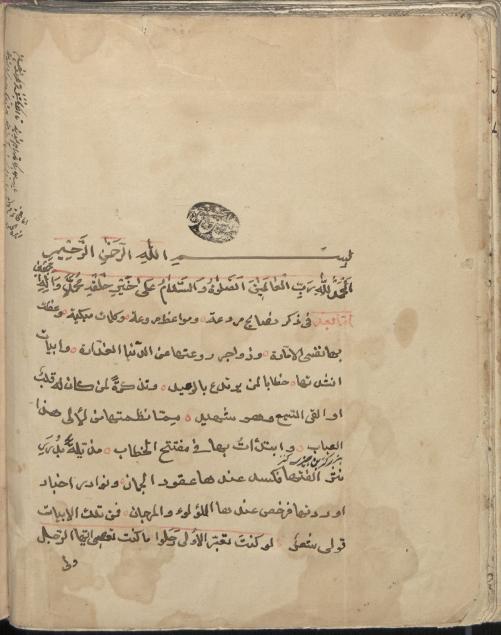 بسم الله الرحمن الرحيم
الحمد لله رب العالمين الصلوة والسلام على خير خلقه محمد واله
اما بعد فى ذكر نصايح مروعة ومواعظ مروعة وكلمات مبكية وعظت
بها نفسى الامارة وزواجر روعتها من الدنيا الغدارة وابيات
انشدتها خطابا لمن يوتدع بالوعيد وتذكرة لمن كان له قلب
او القى السمع وهو شهيد مما نظمتها من لألى هذا
العباب وابتدأت بها فى مفتتح الخطاب مذيلة بدرر
نثر الفتها فكسد عندها عقود الجمان ونوادر اخبار
اوردتها فرخص عندها اللؤلوء والمرجان فمن تلك الابيات
قولى شعر لو كنت تعتبر الأولى رحلوا ما كنت تعصى ايها الرجل